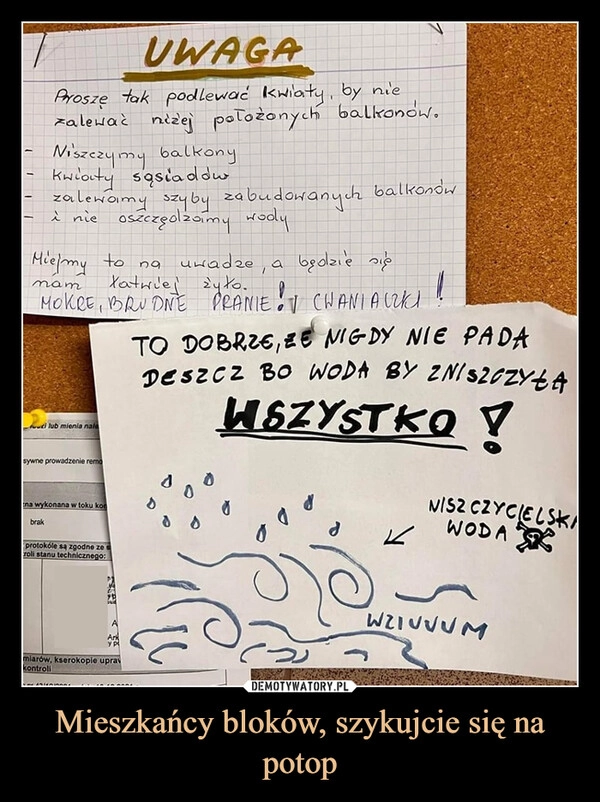 UWAGA
Proszę tak podlewać kwiaty, by nie
zalewać niżej położonych balkonów.
- Niszczymy balkony
- kwiaty sąsiadów
- zalewamy szyby zabudowanych balkonów
- i nie oszczędzamy wody
Miejmy to na uwadze, a będzie się
nam łatwiej żyło.
MOKRE, BRUDNE PRANIE! I CHANIACZKI!
TO DOBRZE, ŻE NIGDY NIE PADA
DESZCZ BO WODA BY ZNISZCZYŁA
WSZYSTKO!
NISZCZYCIELSKA
WODA
WZIUUUM
lub mienia
sywne prowadzenie remo
na wykonana w toku kon
brak
protokóle są zgodne ze s
roli stanu technicznego:
miarów, kserokopie upraw
kontroli
DEMOTYWATORY.PL
Mieszkańcy bloków, szykujcie się na
potop